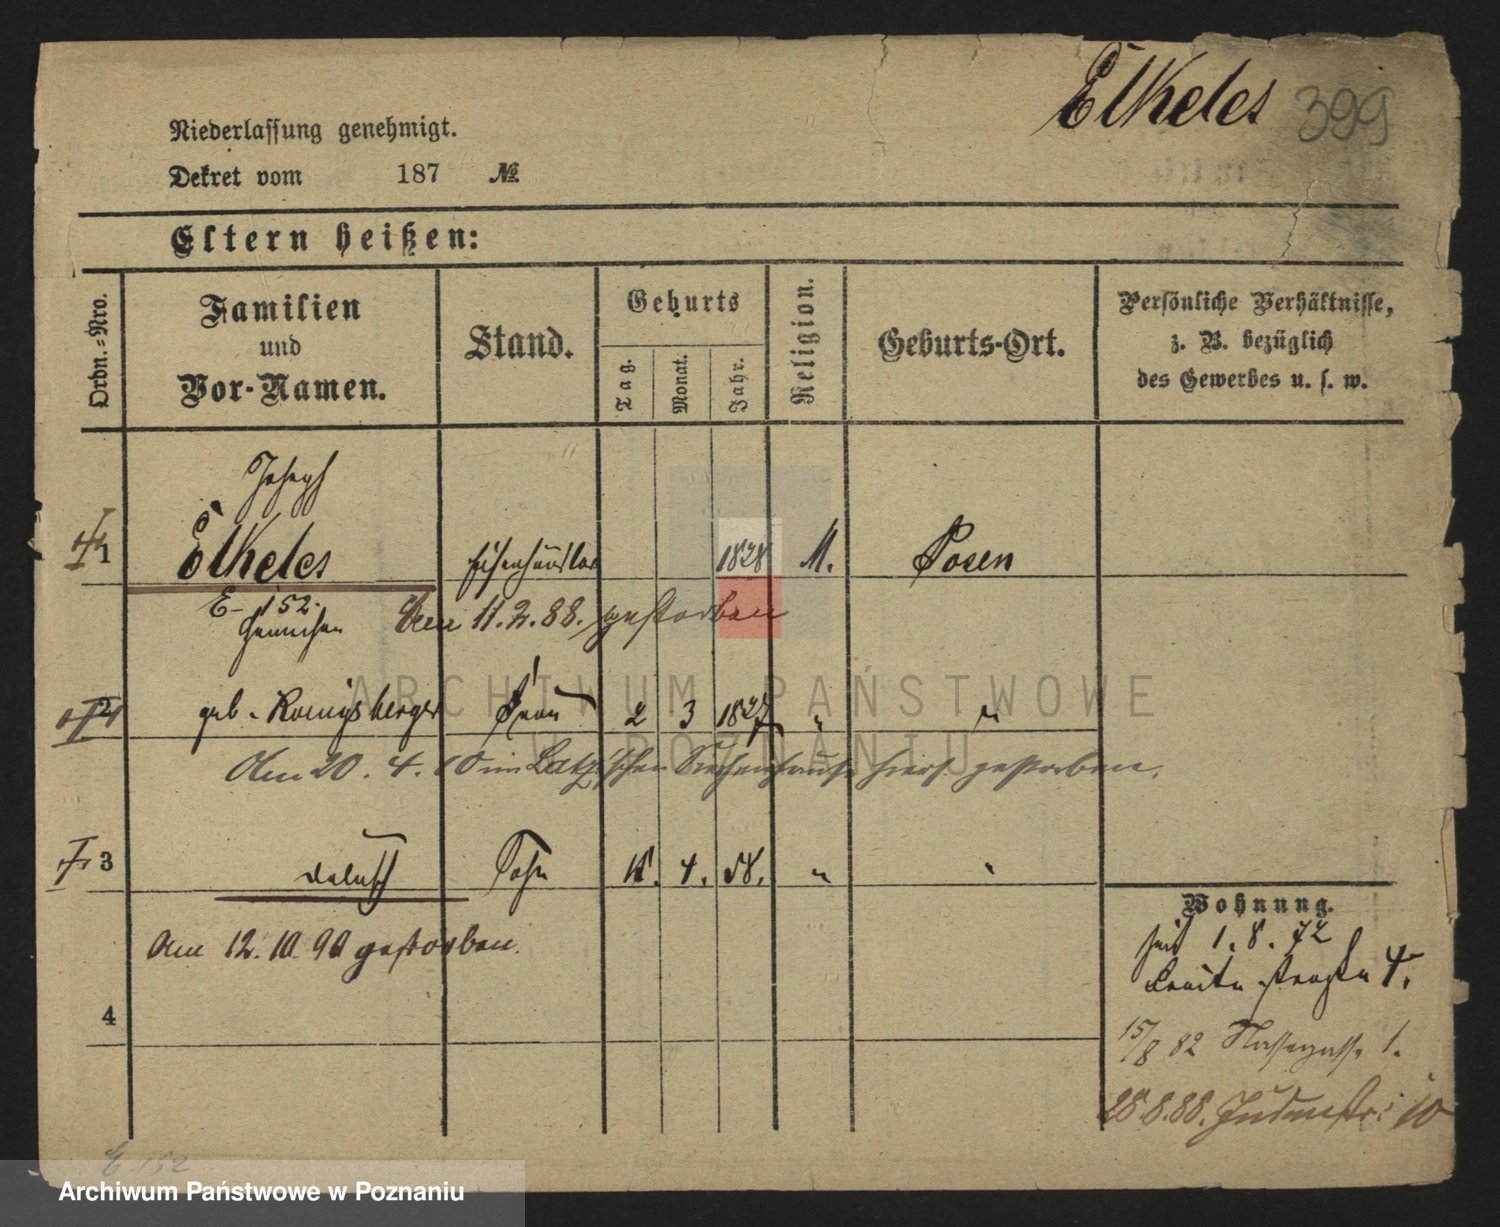 Elkeles 399
Niederlassung genehmigt.
Dekret vom 187 №
Eltern heißen:
Ordn.=Nro.
Familien
und
Vor-Namen.
Stand.
Geburts
Tag.
Monat.
Jahr.
Religion.
Geburts-Ort.
Persönliche Verhältnisse,
z. B. bezüglich
des Gewerbes u. s. w.
Joseph
1 Elkeles Eisenhändler 1828 M. Posen
E- 152.
Am 11.2.88. gestorben
2 geb. Koenigsberger Frau 2 3 1827 " "
Am 20. 4. 00 im Latz'schen Siechenhause hiers. gestorben.
3 Sohn 18. 4. 58. " "
Am 12. 10. 90 gestorben.
4
Wohnung.
seit 1. 8. 72
Breite straße 4.
15/8 82 Nassegasse 1.
28.8.88. Judenstr. 10
E 152
ARCHIWUM PAŃSTWOWE
W POZNANIU
Archiwum Państwowe w Poznaniu